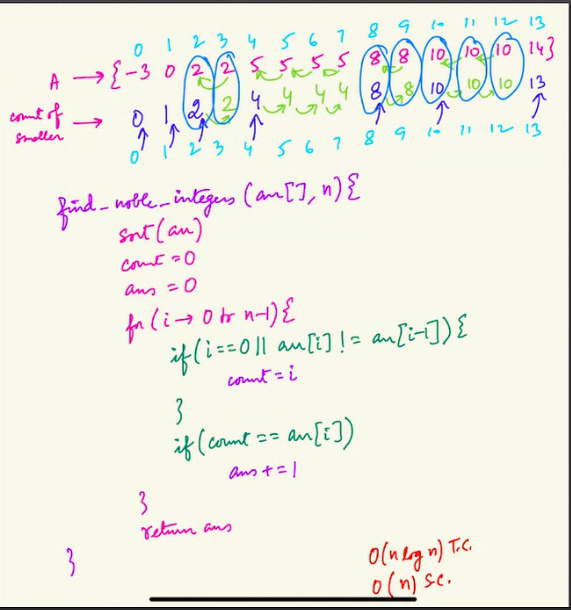 0 1 2 3 4 5 6 7 8 9 10 11 12 13
A → {-3 0 2 2 5 5 5 5 8 8 10 10 10 14}
count of smaller → 0 1 2 2 4 4 4 4 8 8 10 10 10 13
0 1 2 3 4 5 6 7 8 9 10 11 12 13
find_noble_integers (arr[], n) {
sort (arr)
count = 0
ans = 0
for (i → 0 to n-1) {
if (i==0 || arr[i] != arr[i-1]) {
count = i
}
if (count == arr[i])
ans += 1
}
return ans
}
O(n log n) T.C.
O(n) S.C.